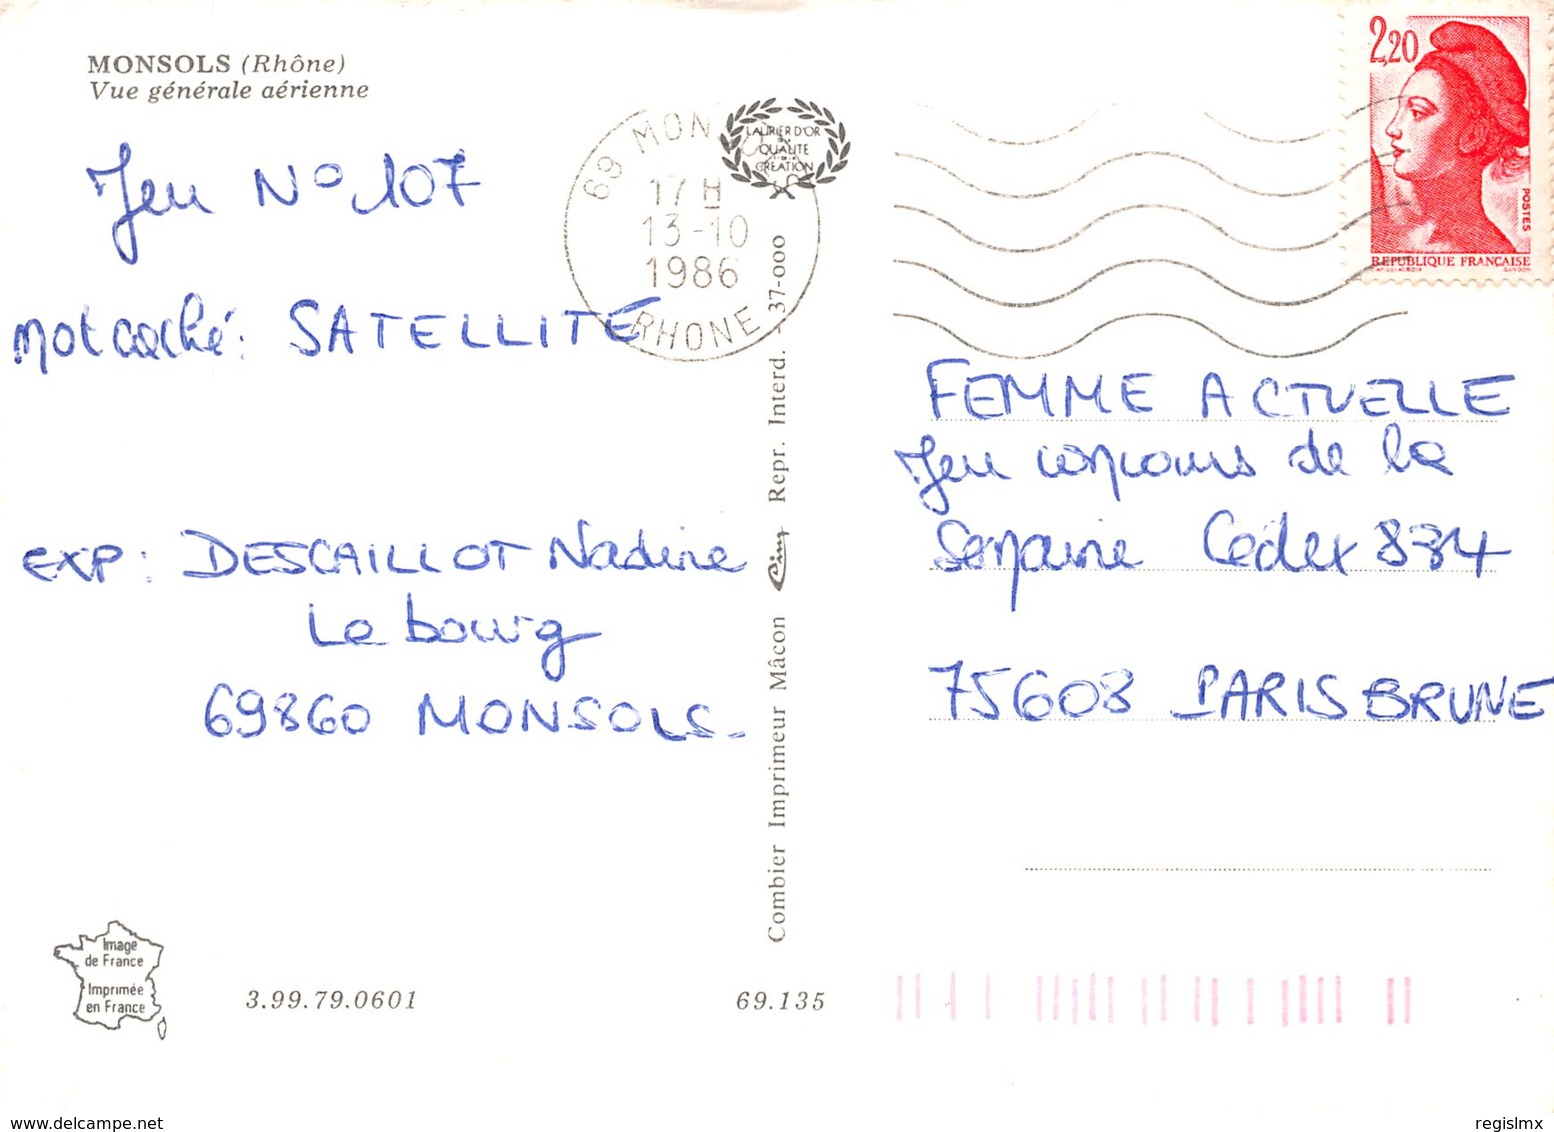 MONSOLS (Rhône)
Vue générale aérienne
Jeu N° 107
Mot caché: SATELLITE
EXP: DESCAILLOT Nadine
Le bourg
69860 MONSOLS.
Image
de France
Imprimée
en France
3.99.79.0601
69.135
Combier Imprimeur Mâcon Repr. Interd. 37-000
69 MON
17 H
13-10
1986
RHONE
LAURIER D'OR
QUALITE
CREATION
2,20
POSTES
REPUBLIQUE FRANÇAISE
D'AP. DELACROIX GANDON
FEMME ACTUELLE
Jeu concours de la
Semaine Cedex 834
75608 PARIS BRUNE
www.delcampe.net
regislmx